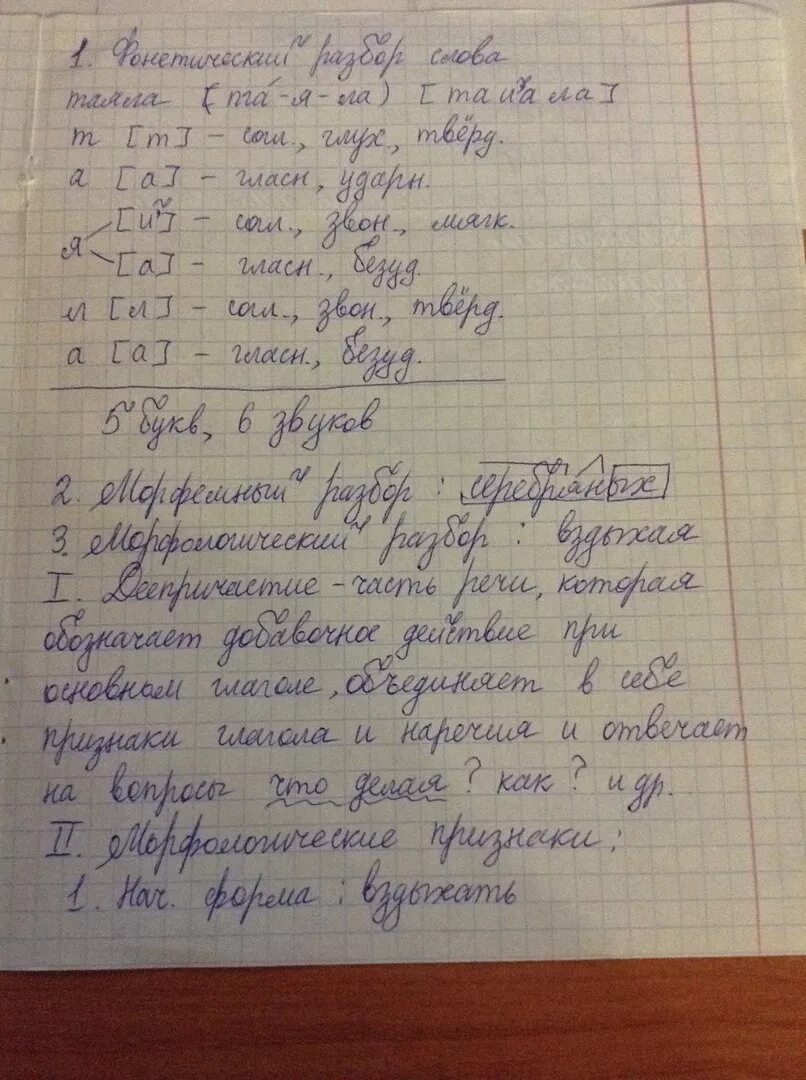 1. Фонетический разбор слова
таяла (та́-я-ла) [тай'ала]
т [т] – согл., глух., твёрд.
а [а] – гласн., ударн.
я [й'] – согл., звон., мягк.
[а] – гласн., безуд.
л [л] – согл., звон., твёрд.
а [а] – гласн., безуд.
5 букв, 6 звуков
2. Морфемный разбор: серебряных
3. Морфологический разбор: вздыхая
I. Деепричастие – часть речи, которая
обозначает добавочное действие при
основном глаголе, объединяет в себе
признаки глагола и наречия и отвечает
на вопросы что делая? как? и др.
II. Морфологические признаки:
1. Нач. форма: вздыхать